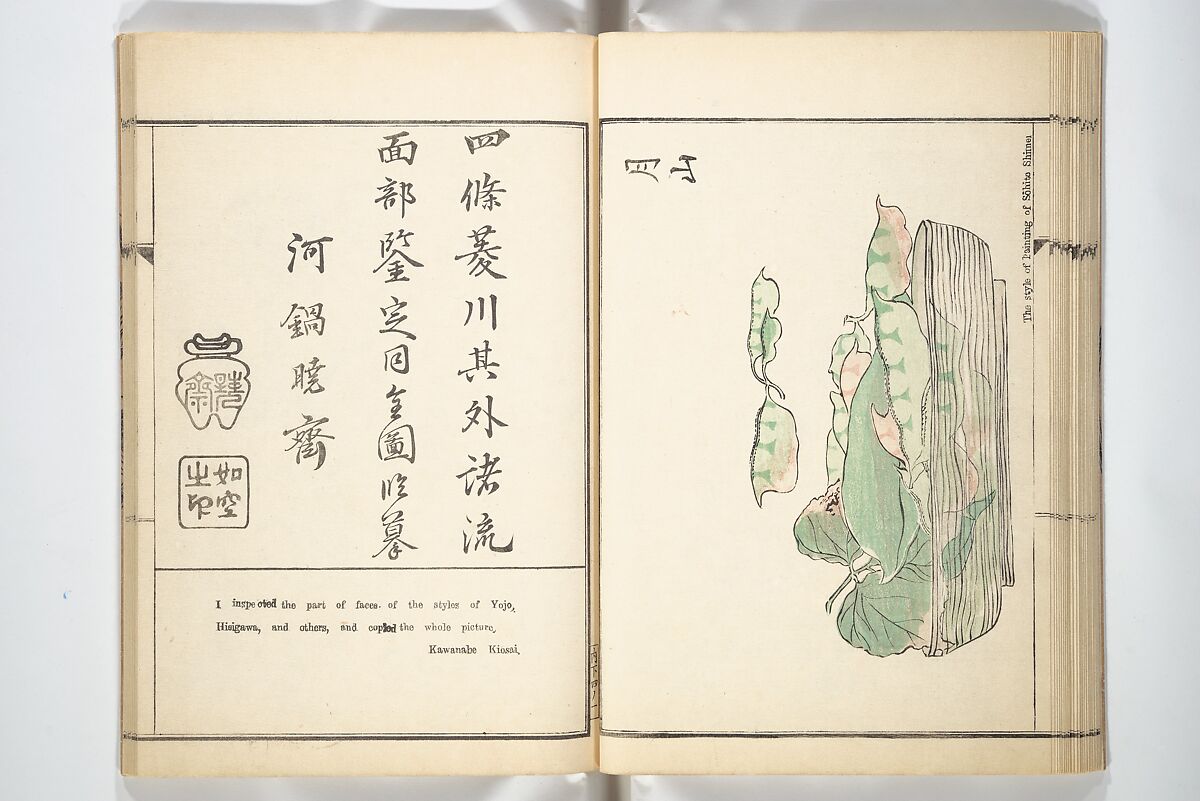 The style of Painting of Sōhita Shimei
月山
四條菱川其外諸流
面部鑒定同全圖臨摹
河鍋曉齋
如空之印
I inspected the part of faces. of the styles of Yojo,
Hisigawa, and others, and copied the whole picture,
Kawanabe Kiosai,